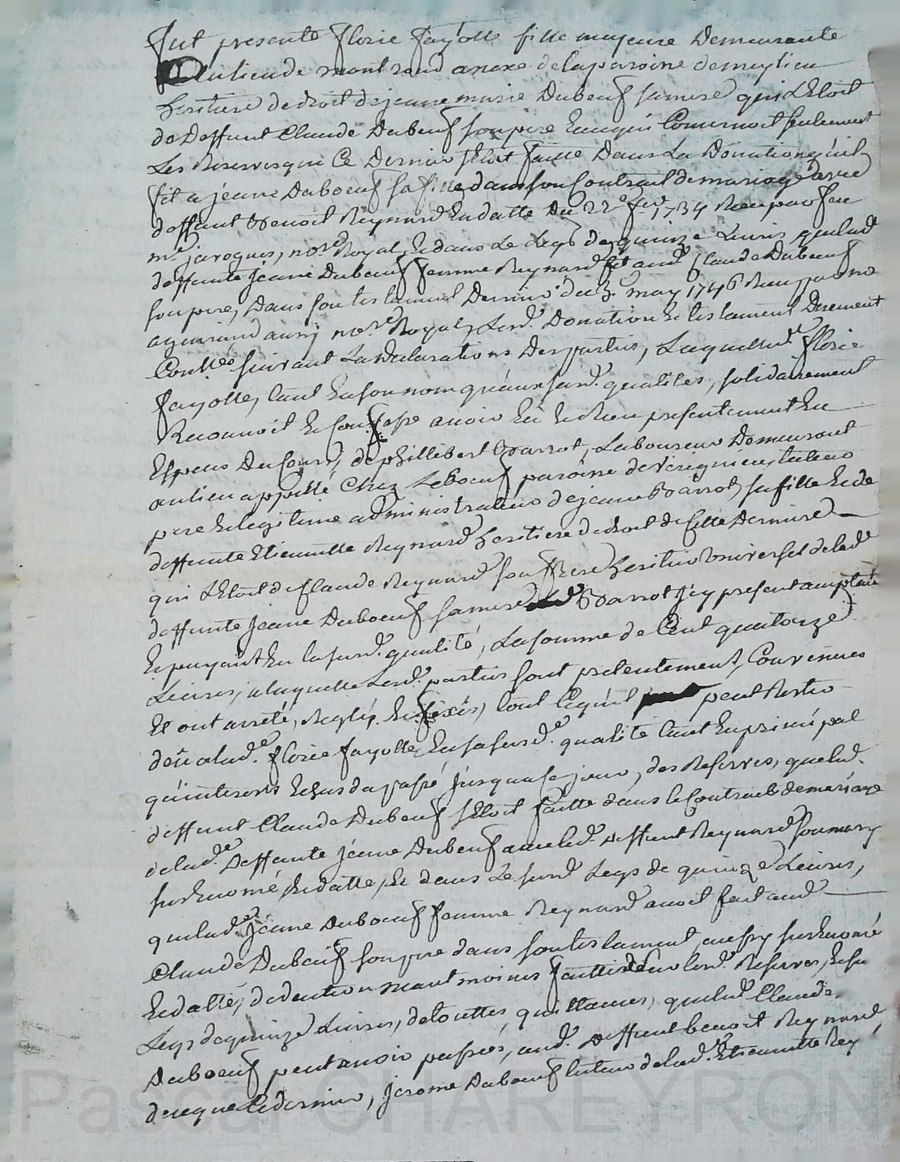 fut presente florie fayolle fille majeure Demeurante
au lieu de montrond anexe de la paroine de meylieu
heritiere de droit de jeanne marie Duboeuf sa mere qui L'Etoit
de Deffunt Claude Duboeuf son pere Lesquis Concernoit seulement
Les Reserves que Ce Dernier s'Etoit faitte Dans La Donation qu'il
fit a jeane Duboeuf sa fille dans son Contract de mariage avec
deffunt Benoit Reynard En datte Du 22e fer 1734 Reçu par feu
me jaroques, nore Royal, Et dans Le Legs de quinze Livres que lad
deffunte jeane Duboeuf femme Reynard fit aud Claude Duboeuf
son pere, Dans son testament Dernier du 3e may 1746 Reçu par me
aguiraud aussy nore Royal, Lesd. Donation Et testament Duement
Conllés suivant La declarations Des parties, Laquelle d. florie
fayolle, tant En son nom qu'aux susd. qualités, solidairement
Reconnoit Et Confesse avoir Eû Et Reçu presentement En
Especes Du Cours, de phillibert Barrot, Laboureur Demeurant
au lieu appellé Chez Leboeuf paroine de verignieu, tuteur
pere Et legitime administrateur de jeane Barrot, sa fille Et de
deffunte Etiennette Reynard heritiere de droit de cette Derniere
qui L'Etoit de Claude Reynard son frere heritier Universel de lad
deffunte jeane Duboeuf sa mere Barrot Jcy present acceptant
Et payant En la susd. qualité, La somme de Cent quatorze
Livres, a laquelle Lesd. parties sont presentement, Convenues
Et ont arreté, Reglés, Et fixés, tout Ce qu'il peut Rester
dû a lad. florie fayolle, En sa susd. qualité tant En principal
qu'interests Echus du passé jusqu'a ce jour, des Reserves, que led.
deffunt Claude Duboeuf s'Etoit faitte dans le Contract de mariage
de lad. Deffunte jeane Duboeuf avec led. Deffunt Reynard son mary
sus Enomé, Et datté, Et dans Le susd. Legs de quinze Livres,
que lad. jeane Duboeuf femme Reynard avoit fait aud
Claude Duboeuf son pere dans son testament, aussy sus Enomé
Et datté, deduction neantmoins faitte sur lesd. Reserves, Et su
Legs de quinze Livres, de touttes quittances, que led. Claude
Duboeuf peut avoir passés, aud. Deffunt benoit Reynard
de ce que Ce dernier, jerome Duboeuf tuteur de lad. Etiennette Rey
Pascal CHAREYRON